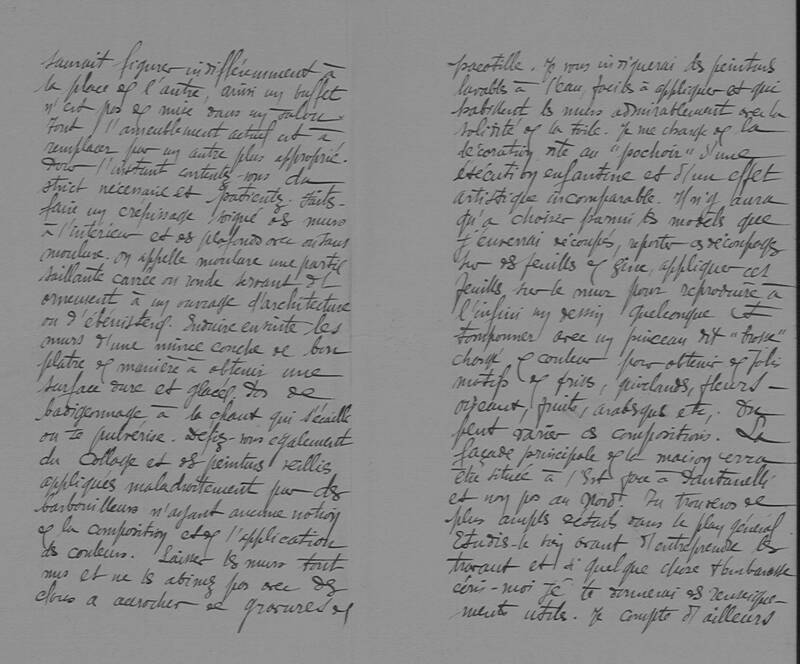 saurait figurer indifféremment à
la place de l'autre, ainsi un buffet
n'est pas de mise dans un salon.
Tout l'ameublement actuel est à
remplacer par un autre plus approprié.
Pour l'instant contentez-vous du
strict nécessaire et patientez. Faites-
faire un crépissage soigné des murs
à l'intérieur et des plafonds avec ou sans
moulure. On appelle moulure une partie
saillante carrée ou ronde servant d'
ornement à un ouvrage d'architecture
ou d'ébénisterie. Enduire ensuite les
murs d'une mince couche de bon
plâtre de manière à obtenir une
surface dure et glacée. Pas de
badigeonnage à la chaux qui s'écaille
ou se pulvérise. Défiez-vous également
du collage et des peintures
appliqués maladroitement par des
barbouilleurs n'ayant aucune notion
de la composition et de l'application
des couleurs. Laisser les murs tout
nus et ne les abîmez pas avec des
clous à accrocher de gravures de
pacotille. Je vous indiquerai des peintures
lavables à l'eau, faciles à appliquer et qui
habillent les murs admirablement avec la
solidité de la toile. Je me charge de la
décoration dite au "pochoir" d'une
exécution enfantine et d'un effet
artistique incomparable. Il n'y aura
qu'à choisir parmi les modèles que
j'enverrai découpés, reporter ces découpages
sur des feuilles de zinc, appliquer ces
feuilles sur le mur pour reproduire à
l'infini un dessin quelconque et
tamponner avec un pinceau dit "brosse"
chargé de couleur pour obtenir de jolis
motifs de frises, guirlandes, fleurs-
oiseaux, fruits, arabesques etc,. On
peut varier ces compositions. La
façade principale de la maison devra
être située à l'Est face à
et non pas au Nord. Tu trouveras de
plus amples détails dans le plan général
Etudie-le bien avant d'entreprendre les
travaux et si quelque chose t'embarrasse
écris-moi je te donnerai des renseigne-
ments utiles. Je compte d'ailleurs